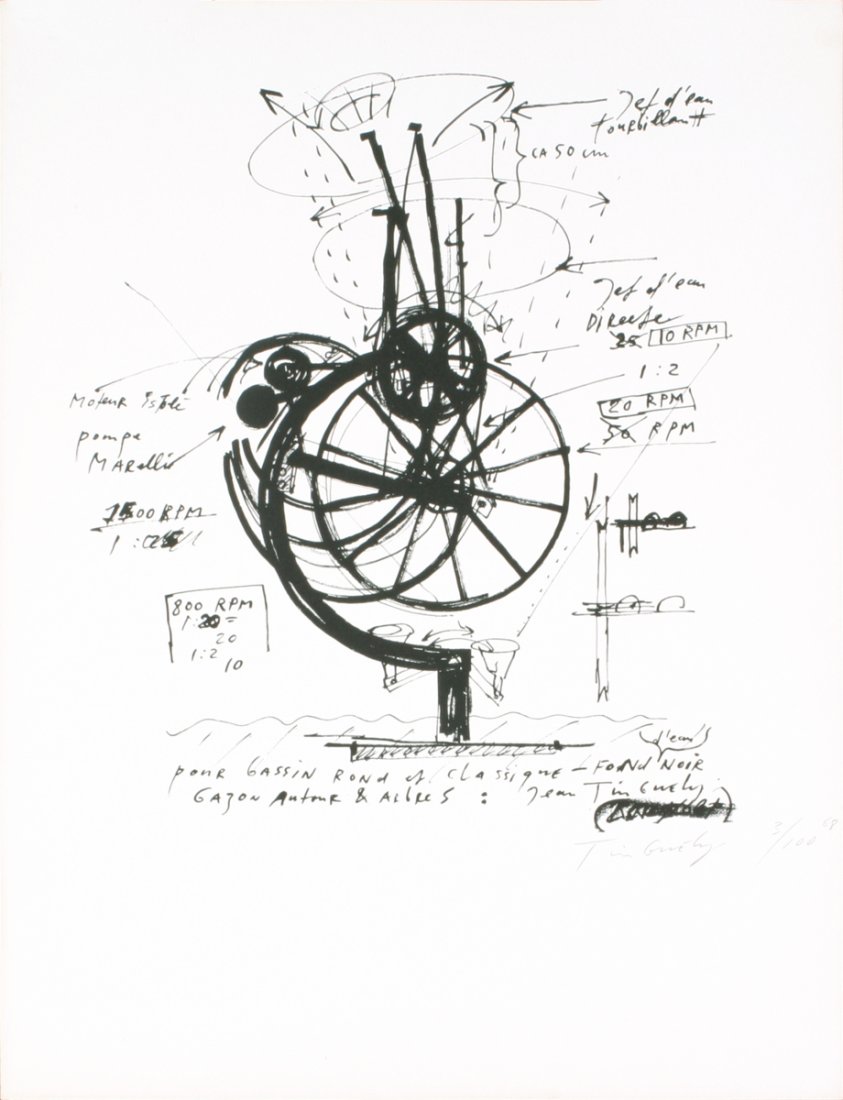 Jet d'eau
tourbillant
CA 50 cm
Jet d'eau
Directe
25 10 RPM
1:2
20 RPM
50 RPM
Moteur isolé
pompe
MARelli
1500 RPM
800 RPM
1:20 =
20
1:2
10
d'eau
pour bassin rond et classique – Fond NOIR
Gazon autour & Arbres : Jean Tinguely
Tinguely 3/100 68